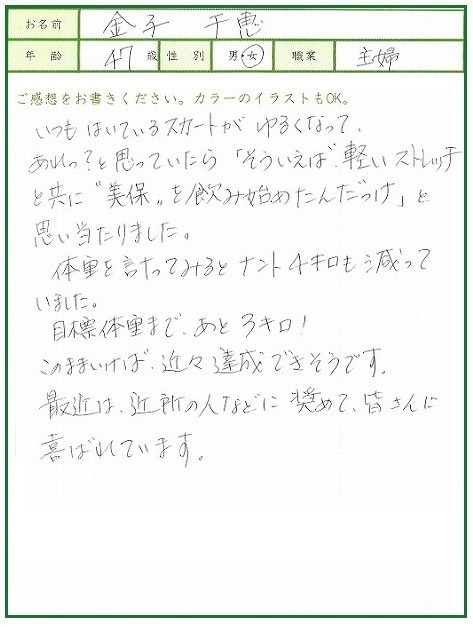 お名前 金子 千恵
年齢 47 歳 性別 男・女 職業 主婦
ご感想をお書きください。カラーのイラストもOK。
いつもはいているスカートがゆるくなって、
あれっ?と思っていたら「そういえば、軽いストレッチ
と共に"美保"を飲み始めたんだっけ」と
思い当たりました。
体重を計ってみるとナント4キロも減って
いました。
目標体重まで、あと3キロ!
このままいけば、近々達成できそうです。
最近は、近所の人などに奨めて、皆さんに
喜ばれています。